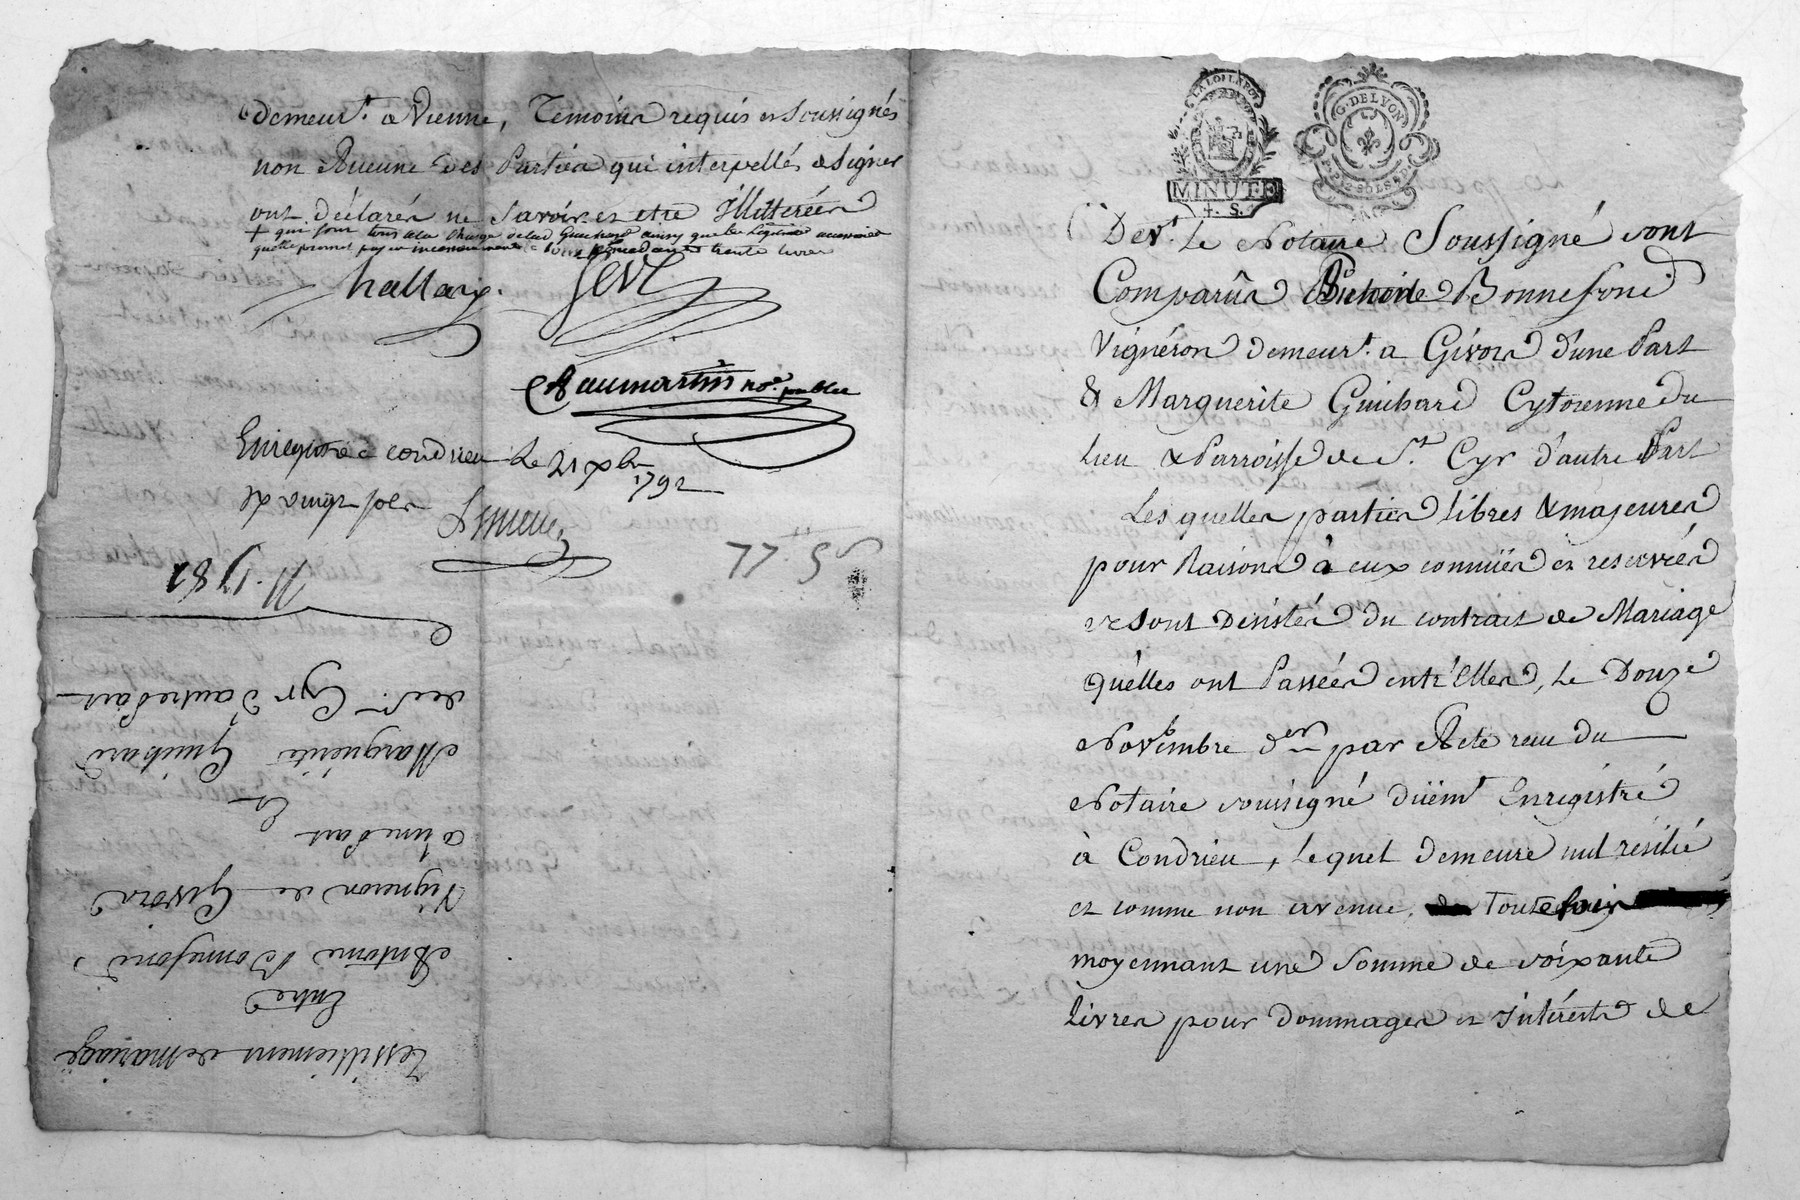 demeurt. a Vienne, Temoins requis et soussignés
non Aucune des Parties qui interpellés de signer
ont déclarés ne savoir et etre Illitterées
+ qui sont tous a la charge de lad Guichard ainsy que les
quelle promet payer incessamment trente livres
hallaix.
Beaumartin no.re public
Enregistré a condrieu Le 21 xbre
1792
LA LOI LE ROI
MINUTE
4. S.
G. DE LYON
Devt. Le Notaire Soussigné sont
Comparus Antoine Bonnefond
Vignéron demeurt. a Givors d'une Part
& Marguerite Guichard Cytoienne du
lieu & Parroisse de St. Cyr d'autre Part
Les quelles parties libres & majeures
pour Raisons à eux connües et reservées
se sont Desistés du contrait de Mariage
qu'elles ont Passées entr'Elles, Le Douze
Novembre der. par Acte recu du
Notaire soussigné düemt Enregistré
à Condrieu, Lequel demeure nul résilié
et comme non avenue. Toutefois
+
moyennant une somme de soixante
Livres pour Dommages et intérêts de
N. 1781
de St. Cyr d'autre Part
Marguérite Guichard
Et
d'une Part
Vigneron de Givors
Antoine Bonnefond,
Entre
de mariage